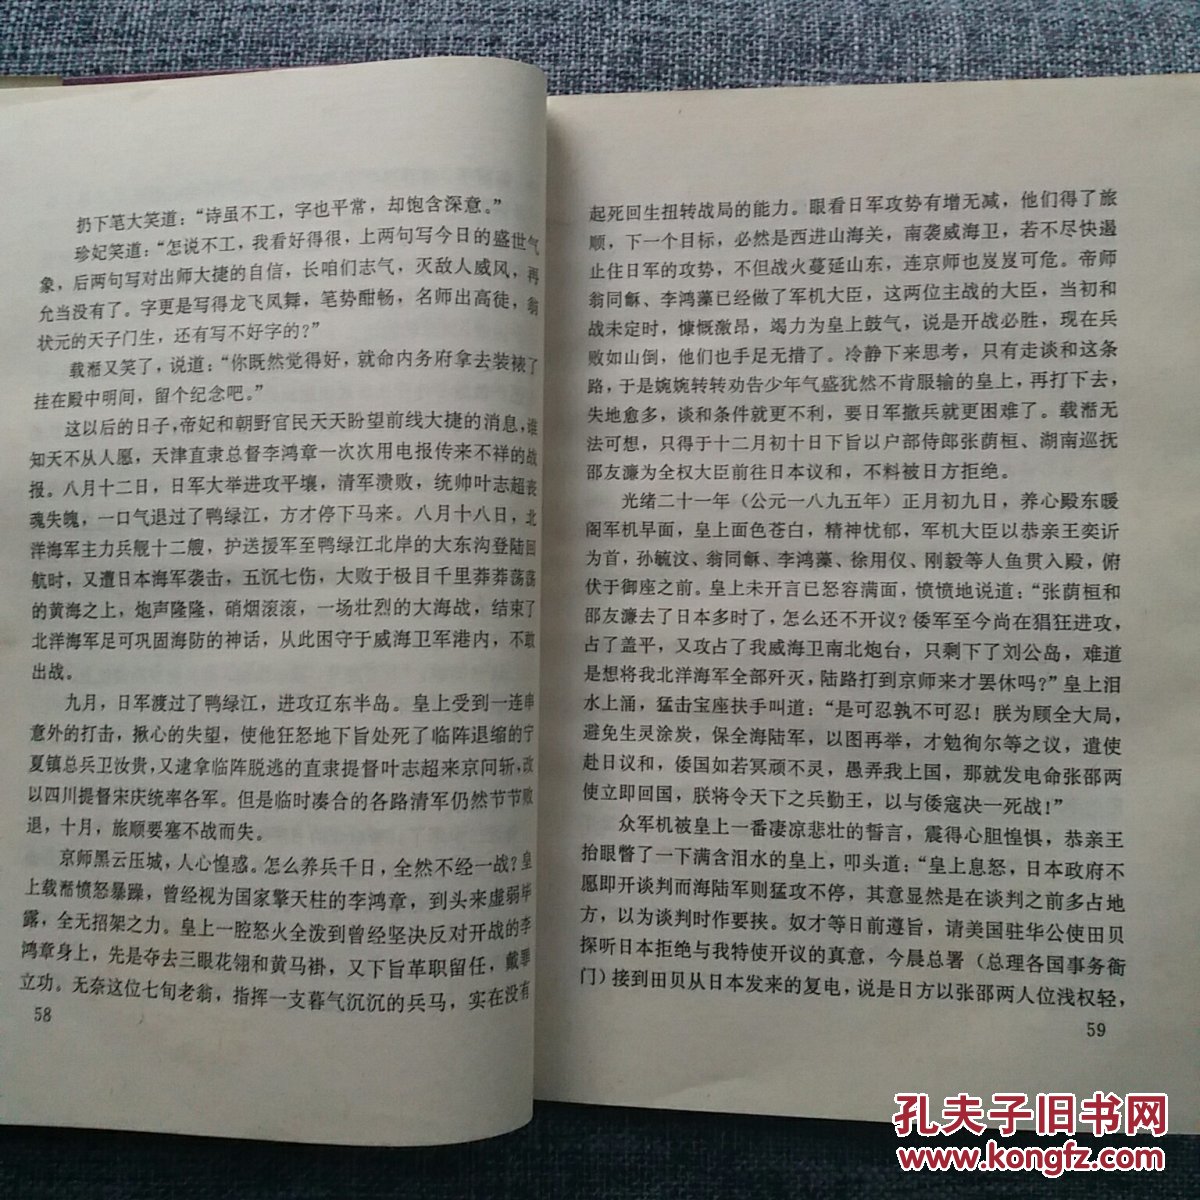 扔下笔大笑道：“诗虽不工，字也平常，却饱含深意。”
珍妃笑道：“怎说不工，我看好得很，上两句写今日的盛世气
象，后两句写对出师大捷的自信，长咱们志气，灭敌人威风，再
允当没有了。字更是写得龙飞凤舞，笔势酣畅，名师出高徒，翁
状元的天子门生，还有写不好字的？”
载湉又笑了，说道：“你既然觉得好，就命内务府拿去装裱了
挂在殿中明间，留个纪念吧。”
这以后的日子，帝妃和朝野官民天天盼望前线大捷的消息，谁
知天不从人愿，天津直隶总督李鸿章一次次用电报传来不祥的战
报。八月十二日，日军大举进攻平壤，清军溃败，统帅叶志超丧
魂失魄，一口气退过了鸭绿江，方才停下马来。八月十八日，北
洋海军主力兵舰十二艘，护送援军至鸭绿江北岸的大东沟登陆回
航时，又遭日本海军袭击，五沉七伤，大败于极目千里莽莽荡荡
的黄海之上，炮声隆隆，硝烟滚滚，一场壮烈的大海战，结束了
北洋海军足可巩固海防的神话，从此困守于威海卫军港内，不敢
出战。
九月，日军渡过了鸭绿江，进攻辽东半岛。皇上受到一连串
意外的打击，揪心的失望，使他狂怒地下旨处死了临阵退缩的宁
夏镇总兵卫汝贵，又逮拿临阵脱逃的直隶提督叶志超来京问斩，改
以四川提督宋庆统率各军。但是临时凑合的各路清军仍然节节败
退，十月，旅顺要塞不战而失。
京师黑云压城，人心惶惑。怎么养兵千日，全然不经一战？皇
上载湉愤怒暴躁，曾经视为国家擎天柱的李鸿章，到头来虚弱毕
露，全无招架之力。皇上一腔怒火全泼到曾经坚决反对开战的李
鸿章身上，先是夺去三眼花翎和黄马褂，又下旨革职留任，戴罪
立功。无奈这位七旬老翁，指挥一支暮气沉沉的兵马，实在没有
58
起死回生扭转战局的能力。眼看日军攻势有增无减，他们得了旅
顺，下一个目标，必然是西进山海关，南袭威海卫，若不尽快遏
止住日军的攻势，不但战火蔓延山东，连京师也岌岌可危。帝师
翁同龢、李鸿藻已经做了军机大臣，这两位主战的大臣，当初和
战未定时，慷慨激昂，竭力为皇上鼓气，说是开战必胜，现在兵
败如山倒，他们也手足无措了。冷静下来思考，只有走谈和这条
路，于是婉婉转转劝告少年气盛犹然不肯服输的皇上，再打下去，
失地愈多，谈和条件就更不利，要日军撤兵就更困难了。载湉无
法可想，只得于十二月初十日下旨以户部侍郎张荫桓、湖南巡抚
邵友濂为全权大臣前往日本议和，不料被日方拒绝。
光绪二十一年（公元一八九五年）正月初九日，养心殿东暖
阁军机早面，皇上面色苍白，精神忧郁，军机大臣以恭亲王奕䜣
为首，孙毓汶、翁同龢、李鸿藻、徐用仪、刚毅等人鱼贯入殿，俯
伏于御座之前。皇上未开言已怒容满面，愤愤地说道：“张荫桓和
邵友濂去了日本多时了，怎么还不开议？倭军至今尚在猖狂进攻，
占了盖平，又攻占了我威海卫南北炮台，只剩下了刘公岛，难道
是想将我北洋海军全部歼灭，陆路打到京师来才罢休吗？”皇上泪
水上涌，猛击宝座扶手叫道：“是可忍孰不可忍！朕为顾全大局，
避免生灵涂炭，保全海陆军，以图再举，才勉徇尔等之议，遣使
赴日议和，倭国如若冥顽不灵，愚弄我上国，那就发电命张邵两
使立即回国，朕将令天下之兵勤王，以与倭寇决一死战！”
众军机被皇上一番凄凉悲壮的誓言，震得心胆惶惧，恭亲王
抬眼瞥了一下满含泪水的皇上，叩头道：“皇上息怒，日本政府不
愿即开谈判而海陆军则猛攻不停，其意显然是在谈判之前多占地
方，以为谈判时作要挟。奴才等日前遵旨，请美国驻华公使田贝
探听日本拒绝与我特使开议的真意，今晨总署（总理各国事务衙
门）接到田贝从日本发来的复电，说是日方以张邵两人位浅权轻，
59
孔夫子旧书网
www.kongfz.com